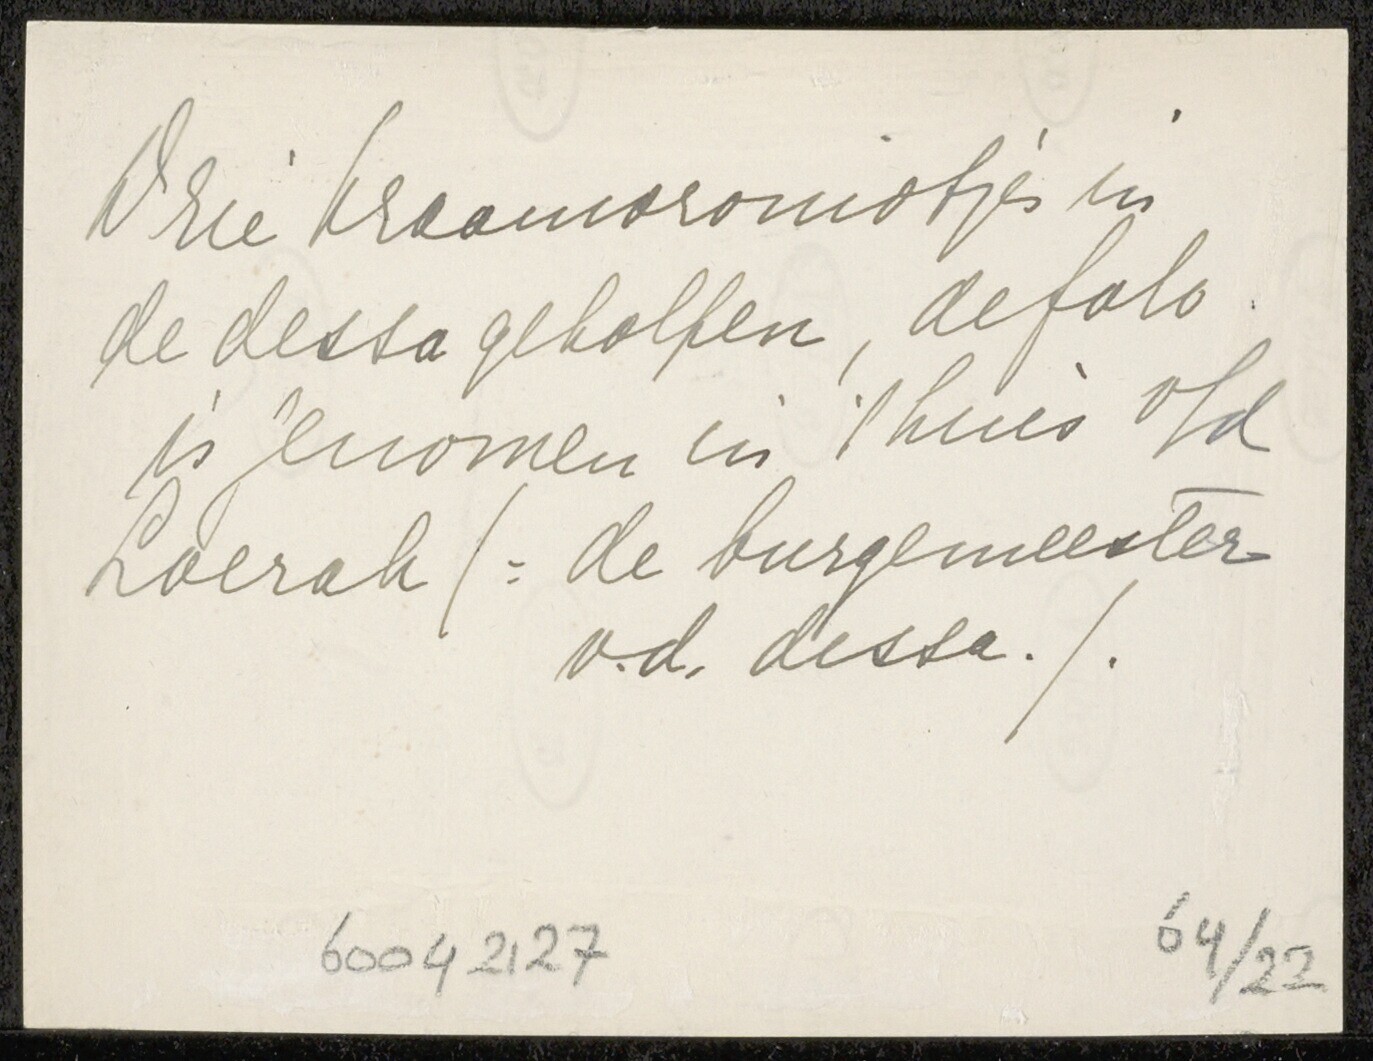 Drie kraamvrouwtjes in
de dessa geholpen, de foto
is genomen in 't huis v/d
Loerah (= de burgemeester
v.d. dessa.).
60042127
64/22